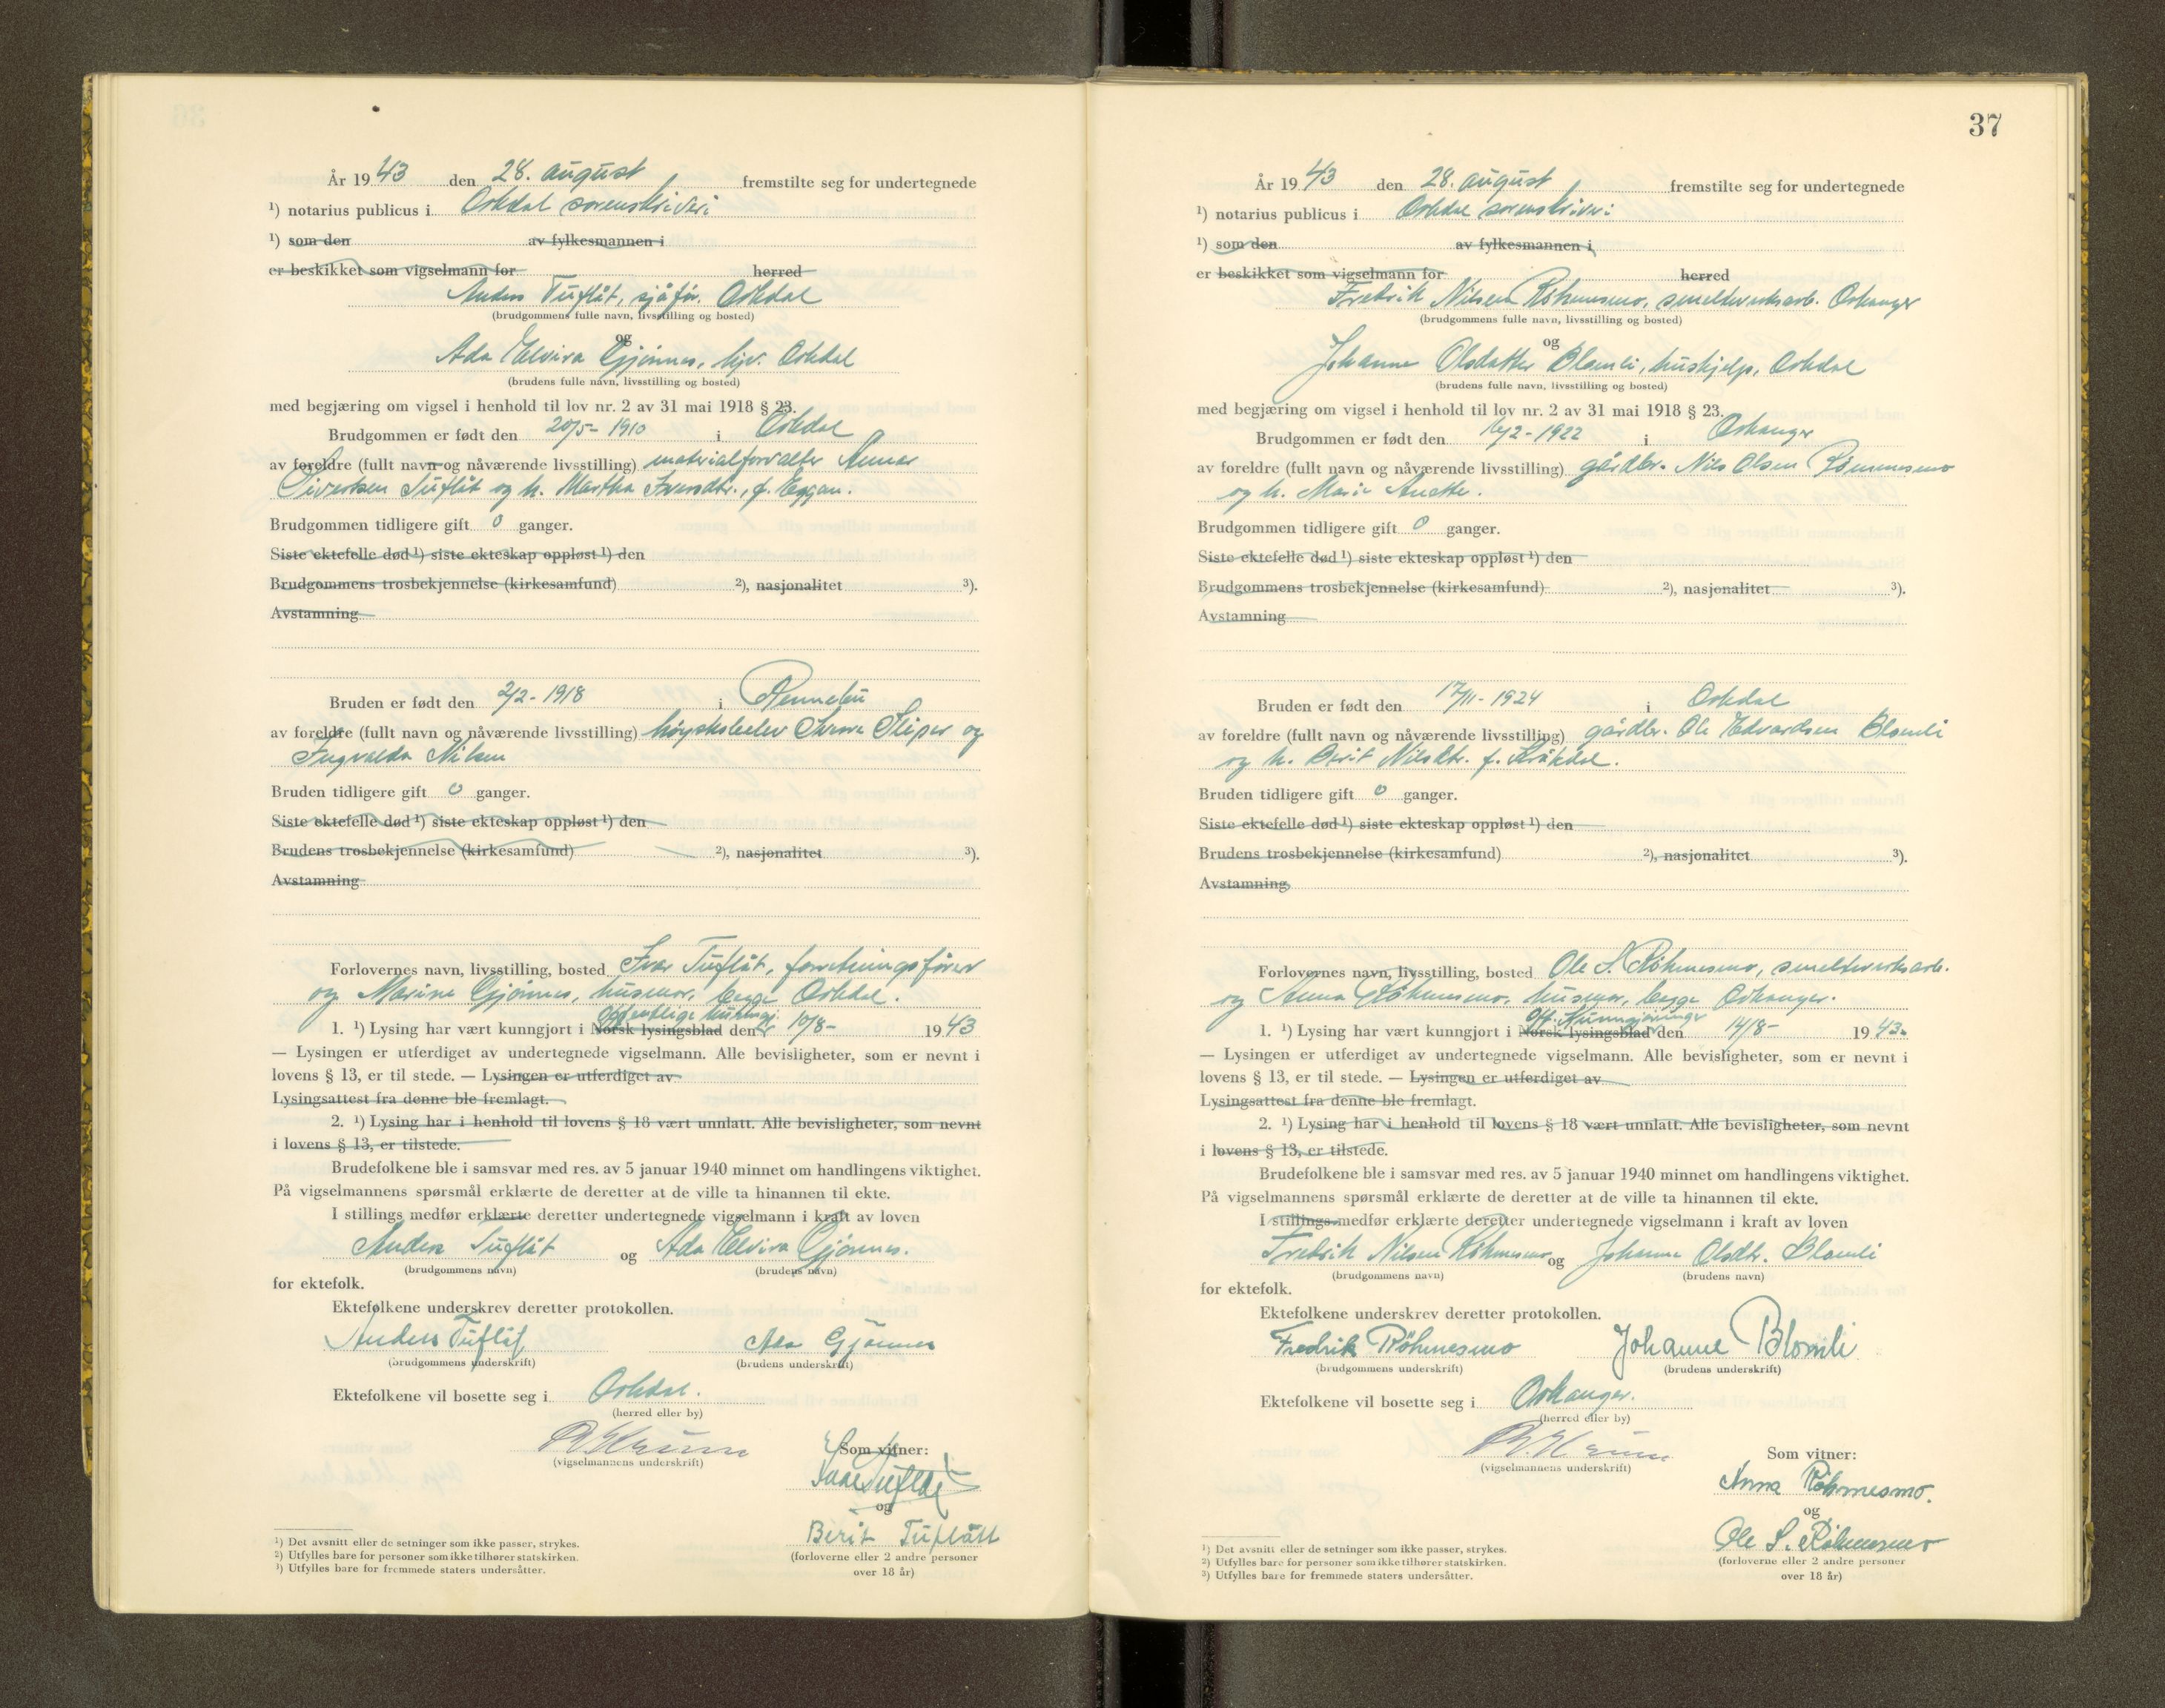 År 1943 den 28. august fremstilte seg for undertegnede
¹) notarius publicus i Orkdal sorenskriveri
¹) som den av fylkesmannen i
er beskikket som vigselmann for herred
Anders Tuflåt, sjåfør. Orkdal
(brudgommens fulle navn, livsstilling og bosted)
og
Ada Elvira Gjönnes, hjv. Orkdal
(brudens fulle navn, livsstilling og bosted)
med begjæring om vigsel i henhold til lov nr. 2 av 31 mai 1918 § 23.
Brudgommen er født den 20/5- 1910 i Orkdal
av foreldre (fullt navn og nåværende livsstilling) materialforvalter
Sivertsen Tuflåt og h. Martha Iversdtr., f. Eggan.
Brudgommen tidligere gift 0 ganger.
Siste ektefelle død ¹) siste ekteskap oppløst ¹) den
Brudgommens trosbekjennelse (kirkesamfund) ²), nasjonalitet ³).
Avstamning
Bruden er født den 2/2- 1918 i Rennebu
av foreldre (fullt navn og nåværende livsstilling) høyskoleelev Sliper og
Ingvalda Nilsen
Bruden tidligere gift 0 ganger.
Siste ektefelle død ¹) siste ekteskap oppløst ¹) den
Brudens trosbekjennelse (kirkesamfund) ²), nasjonalitet ³).
Avstamning
Forlovernes navn, livsstilling, bosted Ivar Tuflåt, forretningsfører
og Marine Gjönnes, husmor, begge Orkdal.
offentlige kunngj.
1. ¹) Lysing har vært kunngjort i Norsk lysingsblad den 10/8- 1943
— Lysingen er utferdiget av undertegnede vigselmann. Alle bevisligheter, som er nevnt i
lovens § 13, er til stede. — Lysingen er utferdiget av
Lysingsattest fra denne ble fremlagt.
2. ¹) Lysing har i henhold til lovens § 18 vært unnlatt. Alle bevisligheter, som nevnt
i lovens § 13, er tilstede.
Brudefolkene ble i samsvar med res. av 5 januar 1940 minnet om handlingens viktighet.
På vigselmannens spørsmål erklærte de deretter at de ville ta hinannen til ekte.
I stillings medfør erklærte deretter undertegnede vigselmann i kraft av loven
Anders Tuflåt og Ada Elvira Gjönnes.
(brudgommens navn) (brudens navn)
for ektefolk.
Ektefolkene underskrev deretter protokollen.
Anders Tuflåt Ada Gjönnes
(brudgommens underskrift) (brudens underskrift)
Ektefolkene vil bosette seg i Orkdal.
(herred eller by)
Som vitner:
(vigselmannens underskrift)
Ivar Tuflåt
og
Berit Tuflått
(forloverne eller 2 andre personer
over 18 år)
¹) Det avsnitt eller de setninger som ikke passer, strykes.
²) Utfylles bare for personer som ikke tilhører statskirken.
³) Utfylles bare for fremmede staters undersåtter.
37
År 1943 den 28. august fremstilte seg for undertegnede
¹) notarius publicus i Orkdal sorenskriveri
¹) som den av fylkesmannen i
er beskikket som vigselmann for herred
Fredrik Nilsen Röhmesmo, smelteverksarb. Orkanger
(brudgommens fulle navn, livsstilling og bosted)
og
Johanne Olsdatter Blomli, hushjelp, Orkdal
(brudens fulle navn, livsstilling og bosted)
med begjæring om vigsel i henhold til lov nr. 2 av 31 mai 1918 § 23.
Brudgommen er født den 16/2- 1922 i Orkanger
av foreldre (fullt navn og nåværende livsstilling) gårdbr. Nils Olsen Römmesmo
og h. Marie Anette.
Brudgommen tidligere gift 0 ganger.
Siste ektefelle død ¹) siste ekteskap oppløst ¹) den
Brudgommens trosbekjennelse (kirkesamfund) ²), nasjonalitet ³).
Avstamning
Bruden er født den 17/11- 1924 i Orkdal
av foreldre (fullt navn og nåværende livsstilling) gårdbr. Ole Edvardsen Blomli
og h. Berit Nilsdtr. f. Kråkdal.
Bruden tidligere gift 0 ganger.
Siste ektefelle død ¹) siste ekteskap oppløst ¹) den
Brudens trosbekjennelse (kirkesamfund) ²), nasjonalitet ³).
Avstamning
Forlovernes navn, livsstilling, bosted Ole S. Röhmesmo, smelteverksarb.
og Anna Röhmesmo, husmor, begge Orkanger.
Off. Kunngjøringer
1. ¹) Lysing har vært kunngjort i Norsk lysingsblad den 14/8- 1943.
— Lysingen er utferdiget av undertegnede vigselmann. Alle bevisligheter, som er nevnt i
lovens § 13, er til stede. — Lysingen er utferdiget av
Lysingsattest fra denne ble fremlagt.
2. ¹) Lysing har i henhold til lovens § 18 vært unnlatt. Alle bevisligheter, som nevnt
i lovens § 13, er tilstede.
Brudefolkene ble i samsvar med res. av 5 januar 1940 minnet om handlingens viktighet.
På vigselmannens spørsmål erklærte de deretter at de ville ta hinannen til ekte.
I stillings medfør erklærte deretter undertegnede vigselmann i kraft av loven
Fredrik Nilsen Röhmesmo og Johanne Olsdtr. Blomli
(brudgommens navn) (brudens navn)
for ektefolk.
Ektefolkene underskrev deretter protokollen.
Fredrik Röhmesmo Johanne Blomli
(brudgommens underskrift) (brudens underskrift)
Ektefolkene vil bosette seg i Orkanger.
(herred eller by)
Som vitner:
(vigselmannens underskrift)
Anna Röhmesmo.
og
Ole S. Röhmesmo
(forloverne eller 2 andre personer
over 18 år)
¹) Det avsnitt eller de setninger som ikke passer, strykes.
²) Utfylles bare for personer som ikke tilhører statskirken.
³) Utfylles bare for fremmede staters undersåtter.